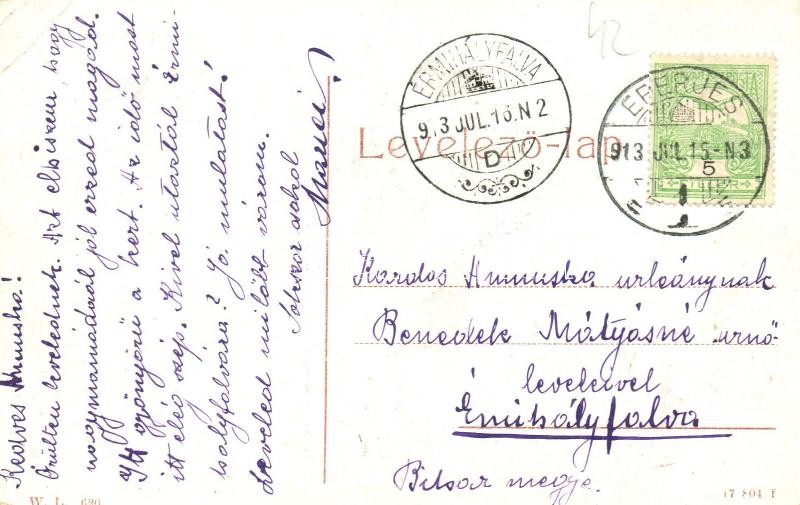 Kedves Annuska!
Örültem levelednek. Azt elhiszem hogy
nagymamádnál jól érzed magad.
Itt gyönyörű a kert. Az idő most
itt elég szép. Kivel utaztál Érmi-
hályfalvára? Jó mulatást!
Leveled mitöbb várom.
Sokszor csókol
42
ÉRMIHÁLYFALVA
913 JUL. 16. N 2
D
Levelező-lap
EPERJES
913 JUL. 15 - N3
5
Kardos Annuska urleánynak
Benedek Mátyásné urnő
leveleivel
Émihályfalva
Bihar megye.
W. L. 620
17 804 f